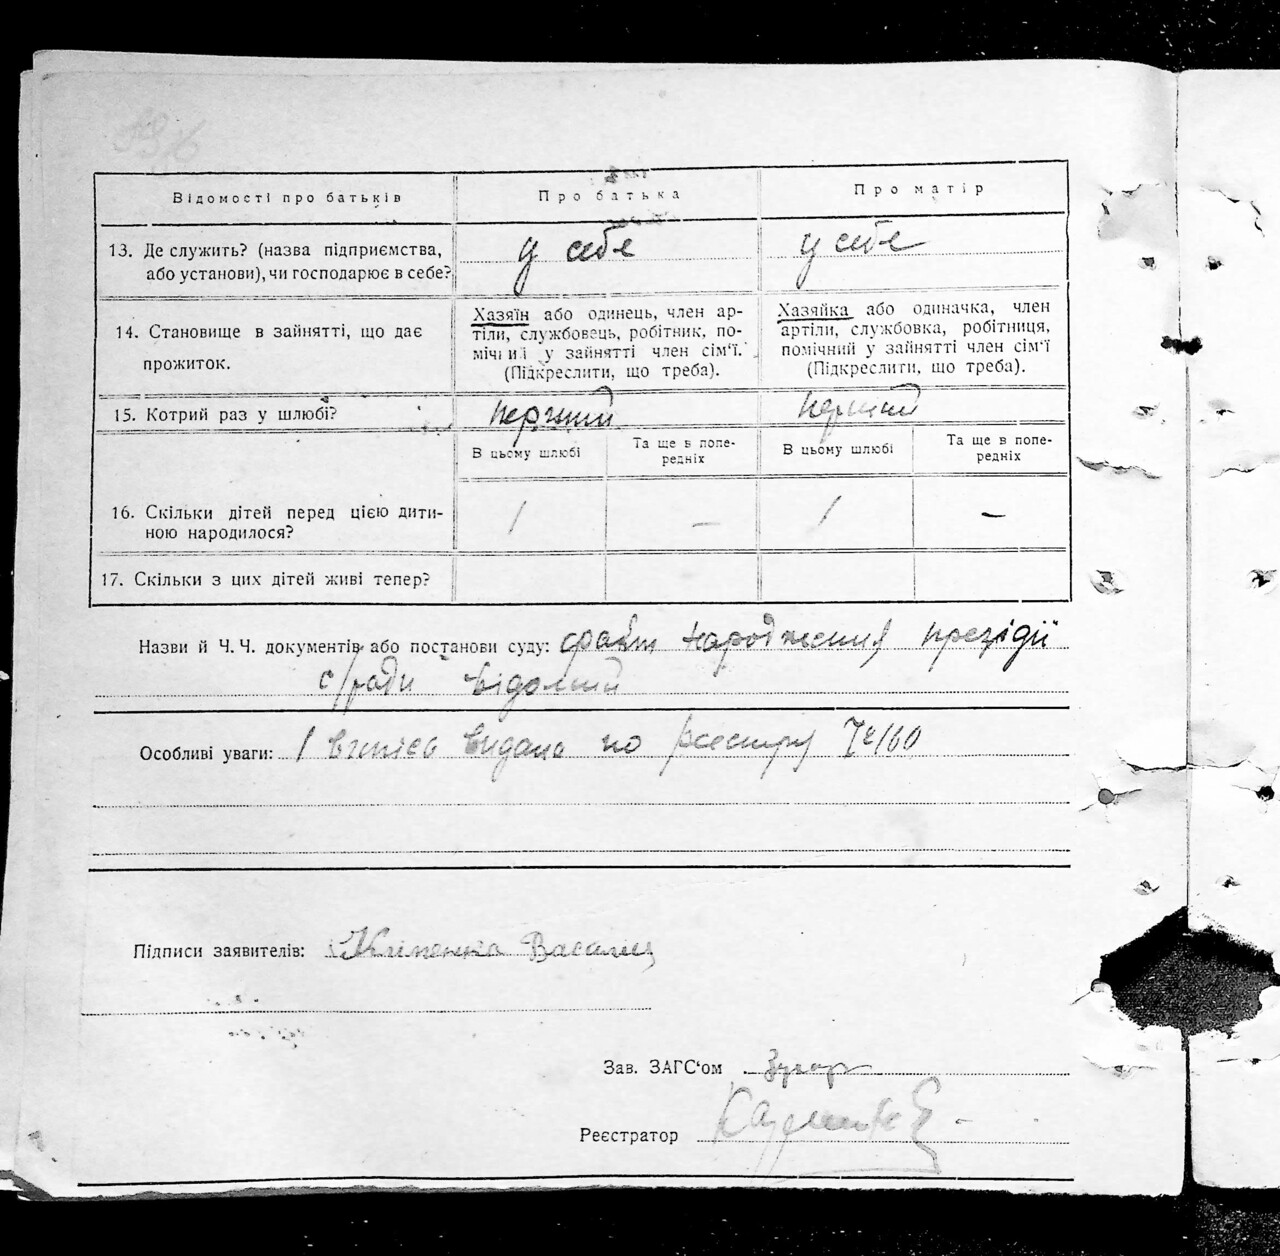 Відомості про батьків
Про батька
Про матір
13. Де служить? (назва підприємства,
або установи), чи господарює в себе?
у себе
у себе
14. Становище в зайнятті, що дає
прожиток.
Хазяїн або одинець, член ар-
тіли, службовець, робітник, по-
мічний у зайнятті член сім'ї.
(Підкреслити, що треба).
Хазяйка або одиначка, член
артіли, службовка, робітниця,
помічний у зайнятті член сім'ї
(Підкреслити, що треба).
15. Котрий раз у шлюбі?
перший
перший
В цьому шлюбі
Та ще в попе-
редніх
В цьому шлюбі
Та ще в попе-
редніх
16. Скільки дітей перед цією дити-
ною народилося?
1
—
1
—
17. Скільки з цих дітей живі тепер?
Назви й Ч. Ч. документів або постанови суду: факт народження президії
с/ради відомий
Особливі уваги: 1 випіс видана по реєстру
Підписи заявителів: Василь
Зав. ЗАГС'ом
Реєстратор